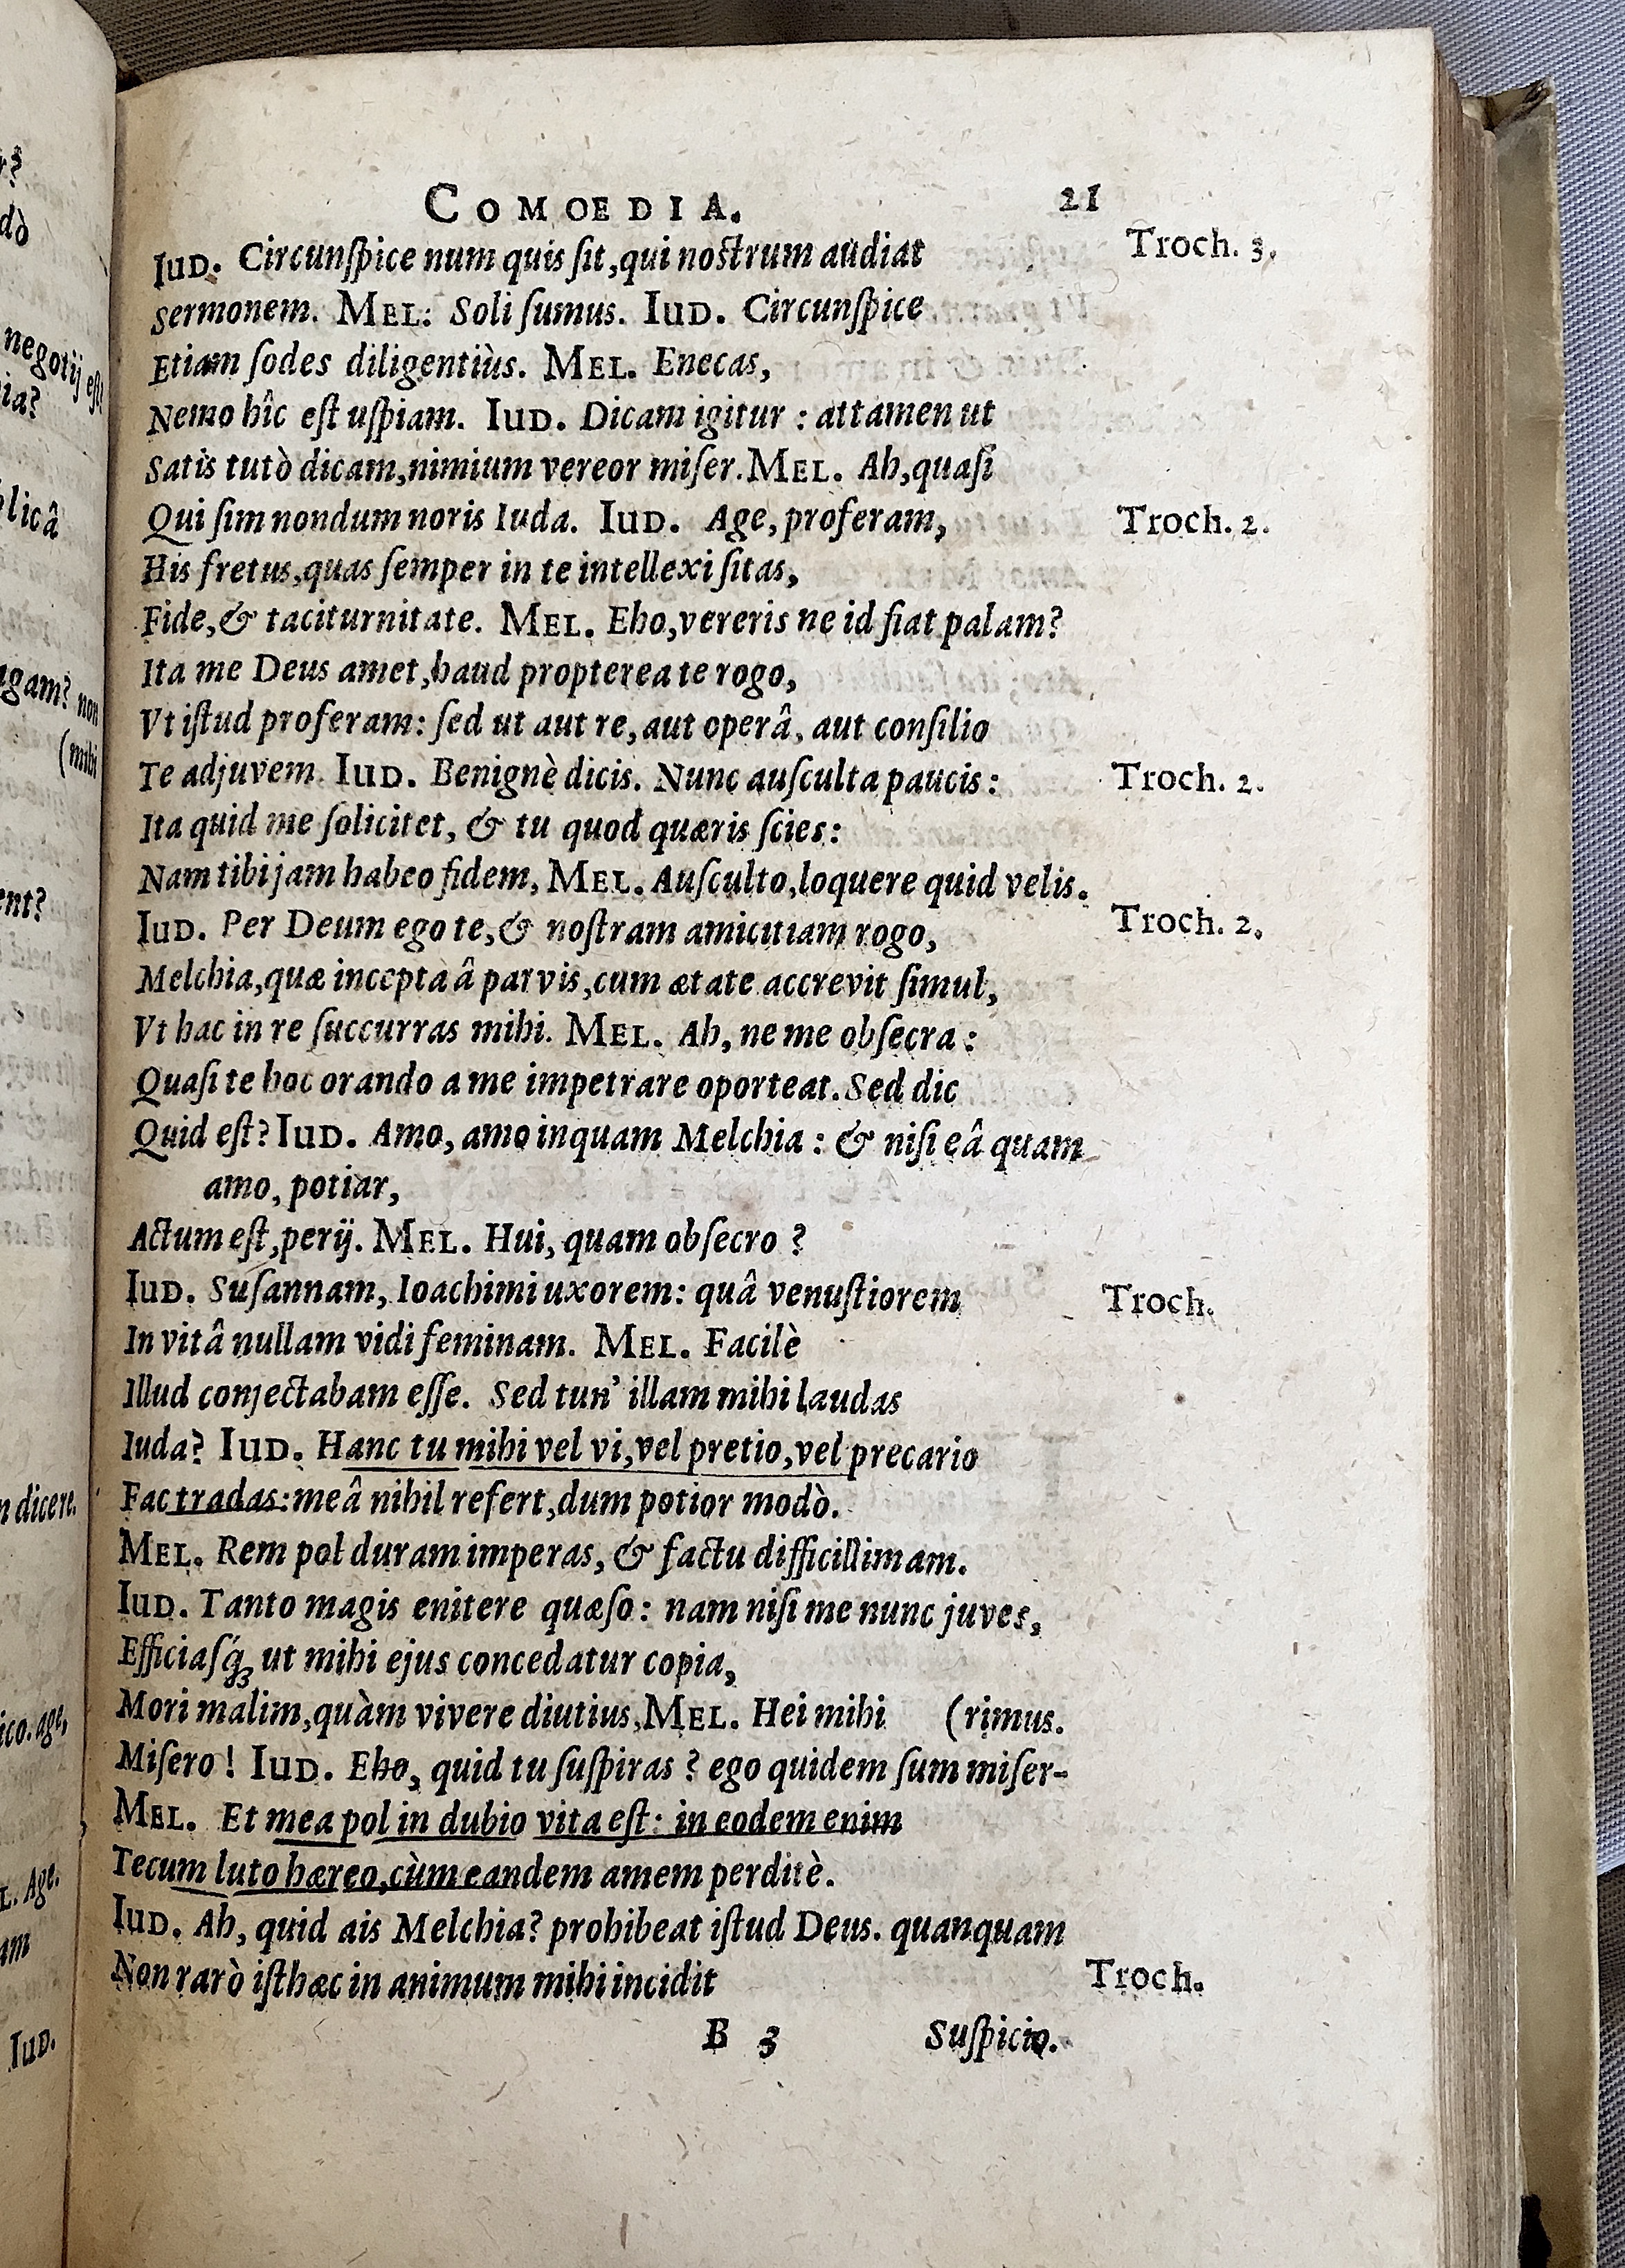 COMOEDIA. 21
IUD. Circunſpice num quis ſit, qui noſtrum audiat Troch. 3.
Sermonem. MEL: Soli ſumus. IUD. Circunſpice
Etiam ſodes diligentiùs. MEL. Enecas,
Nemo hîc eſt uſpiam. IUD. Dicam igitur : attamen ut
Satis tutò dicam, nimium vereor miſer. MEL. Ah, quaſi
Qui ſim nondum noris Iuda. IUD. Age, proferam, Troch. 2.
His fretus, quas ſemper in te intellexi ſitas,
Fide, & taciturnitate. MEL. Eho, vereris ne id fiat palam?
Ita me Deus amet, haud propterea te rogo,
Vt iſtud proferam: ſed ut aut re, aut operâ, aut conſilio
Te adjuvem. IUD. Benignè dicis. Nunc auſculta paucis: Troch. 2.
Ita quid me ſolicitet, & tu quod quæris ſcies:
Nam tibi jam habeo fidem, MEL. Auſculto, loquere quid velis.
IUD. Per Deum ego te, & noſtram amicitiam rogo, Troch. 2,
Melchia, quæ incepta â parvis, cum ætate accrevit ſimul,
Vt hac in re ſuccurras mihi. MEL. Ah, ne me obſecra :
Quaſi te hoc orando a me impetrare oporteat. Sed dic
Quid eſt? IUD. Amo, amo inquam Melchia : & niſi eâ quam
amo, potiar,
Actum eſt, perij. MEL. Hui, quam obſecro ?
IUD. Suſannam, Ioachimi uxorem: quâ venuſtiorem Troch.
In vitâ nullam vidi feminam. MEL. Facilè
Illud conjectabam eſſe. Sed tun' illam mihi laudas
Iuda? IUD. Hanc tu mihi vel vi, vel pretio, vel precario
Fac tradas: meâ nihil refert, dum potior modò.
MEL. Rem pol duram imperas, & factu difficillimam.
IUD. Tanto magis enitere quæſo: nam niſi me nunc juves,
Efficiaſq́ꝫ ut mihi ejus concedatur copia,
Mori malim, quàm vivere diutius, MEL. Hei mihi (rimus.
Miſero! IUD. Eho, quid tu ſuſpiras ? ego quidem ſum miſer-
MEL. Et mea pol in dubio vita eſt: in eodem enim
Tecum luto hæreo, cùm eandem amem perditè.
IUD. Ah, quid ais Melchia? prohibeat iſtud Deus. quanquam
Non rarò iſthæc in animum mihi incidit Troch.
B 3 Suſpicio.